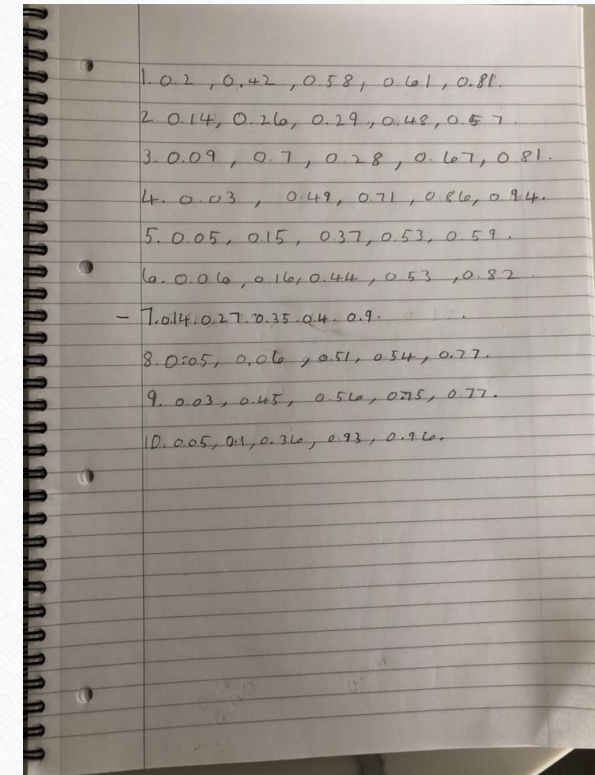 1. 0.2 , 0.42 , 0.58 , 0.61 , 0.81.
2. 0.14, 0.26, 0.29 , 0.48 , 0.57.
3. 0.09 , 0.7 , 0.28 , 0.67 , 0.81.
4. 0.03 , 0.49, 0.71 , 0.86, 0.94.
5. 0.05, 0.15, 0.37, 0.53, 0.59.
6. 0.06, 0.16, 0.44, 0.53, 0.82
- 7. 0.14. 0.27. 0.35. 0.4. 0.9.
8. 0.05, 0.06 , 0.51, 0.54, 0.77.
9. 0.03, 0.45, 0.56, 0.75, 0.77.
10. 0.05, 0.1, 0.36, 0.93, 0.96.